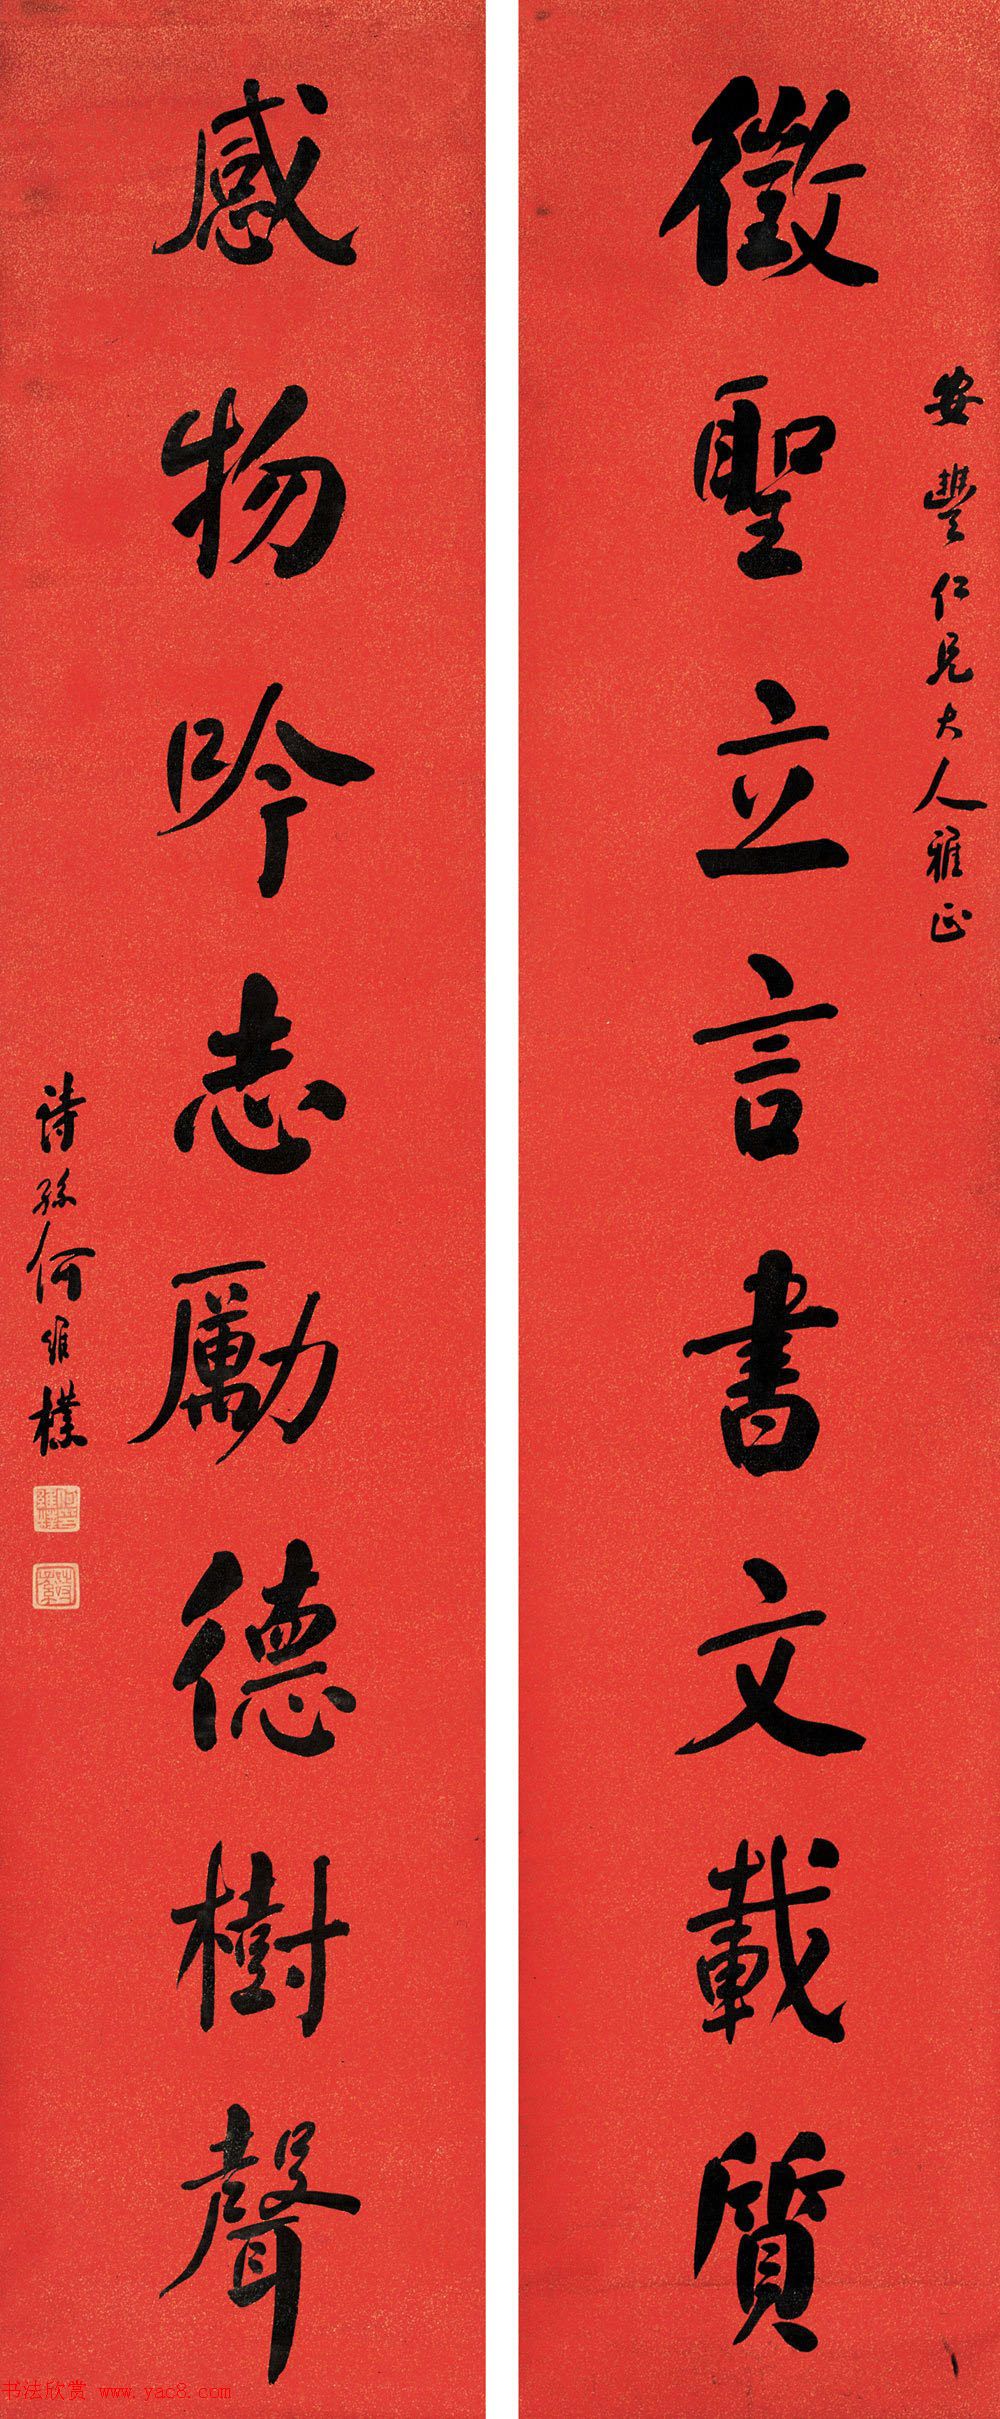 安豐仁兄大人雅正
徵聖立言書文載質
感物吟志勵德樹聲
詩孫何維樸
书法欣赏 www.yac8.com